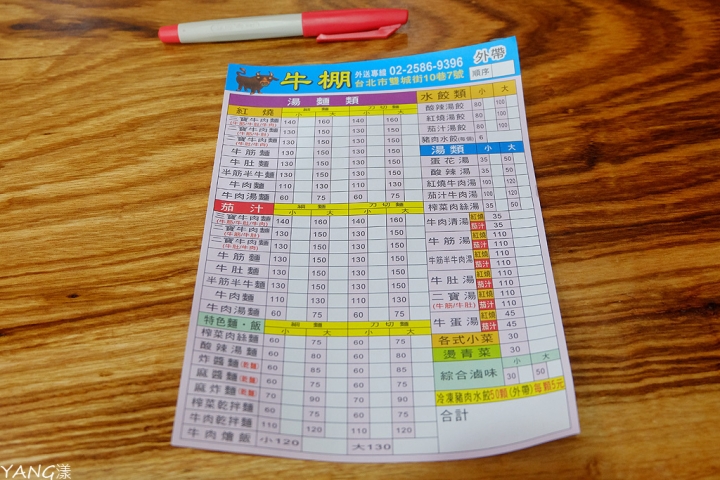 牛棚 外送專線 02-2586-9396 外帶
台北市雙城街10巷7號 順序
湯麵類
紅燒 細麵 刀切麵
小 大 小 大
三寶牛肉麵 140 160 140 160
(牛筋/牛肚/牛肉)
二寶牛肉麵 130 150 130 150
二寶牛肉麵 130 150 130 150
牛筋麵 130 150 130 150
牛肚麵 130 150 130 150
半筋半牛麵 130 150 130 150
牛肉麵 110 130 110 130
牛肉湯麵 60 75 60 75
茄汁 細麵 刀切麵
小 大 小 大
三寶牛肉麵 140 160 140 160
(牛筋/牛肚/牛肉)
二寶牛肉麵 130 150 130 150
(牛筋/牛肚)
二寶牛肉麵 130 150 130 150
牛筋麵 130 150 130 150
牛肚麵 130 150 130 150
半筋半牛麵 130 150 130 150
牛肉麵 110 130 110 130
牛肉湯麵 60 75 60 75
特色麵、飯 細麵 刀切麵
小 大 小 大
榨菜肉絲麵 60 75 60 75
酸辣湯麵 60 80 60 80
炸醬麵(乾麵) 60 85 60 85
麻醬麵(乾麵) 60 75 60 75
麻炸麵(乾麵) 60 75 60 75
榨菜乾拌麵 70 90 70 90
牛肉乾拌麵 60 75 60 75
牛肉燴飯 110 120 110 120
小120 大130
水餃類 小 大
酸辣湯餃 80 100
紅燒湯餃 80 100
茄汁湯餃 80 100
豬肉水餃(每個) 6
湯類 小 大
蛋花湯 35 50
酸辣湯 35 50
紅燒牛肉湯 100 120
茄汁牛肉湯 100 120
榨菜肉絲湯 35 50
牛肉清湯 紅燒 35
茄汁 35
牛筋湯 紅燒 110
茄汁 110
牛筋半牛肉湯 紅燒 110
茄汁 110
牛肚湯 紅燒 110
茄汁 110
二寶湯 紅燒 110
(牛筋/牛肚) 茄汁 110
牛蛋湯 紅燒 45
茄汁 45
各式小菜 30
燙青菜 30
小 大
綜合滷味 30 50
冷凍豬肉水餃50顆(外帶)每顆5元
合計
YANG漾